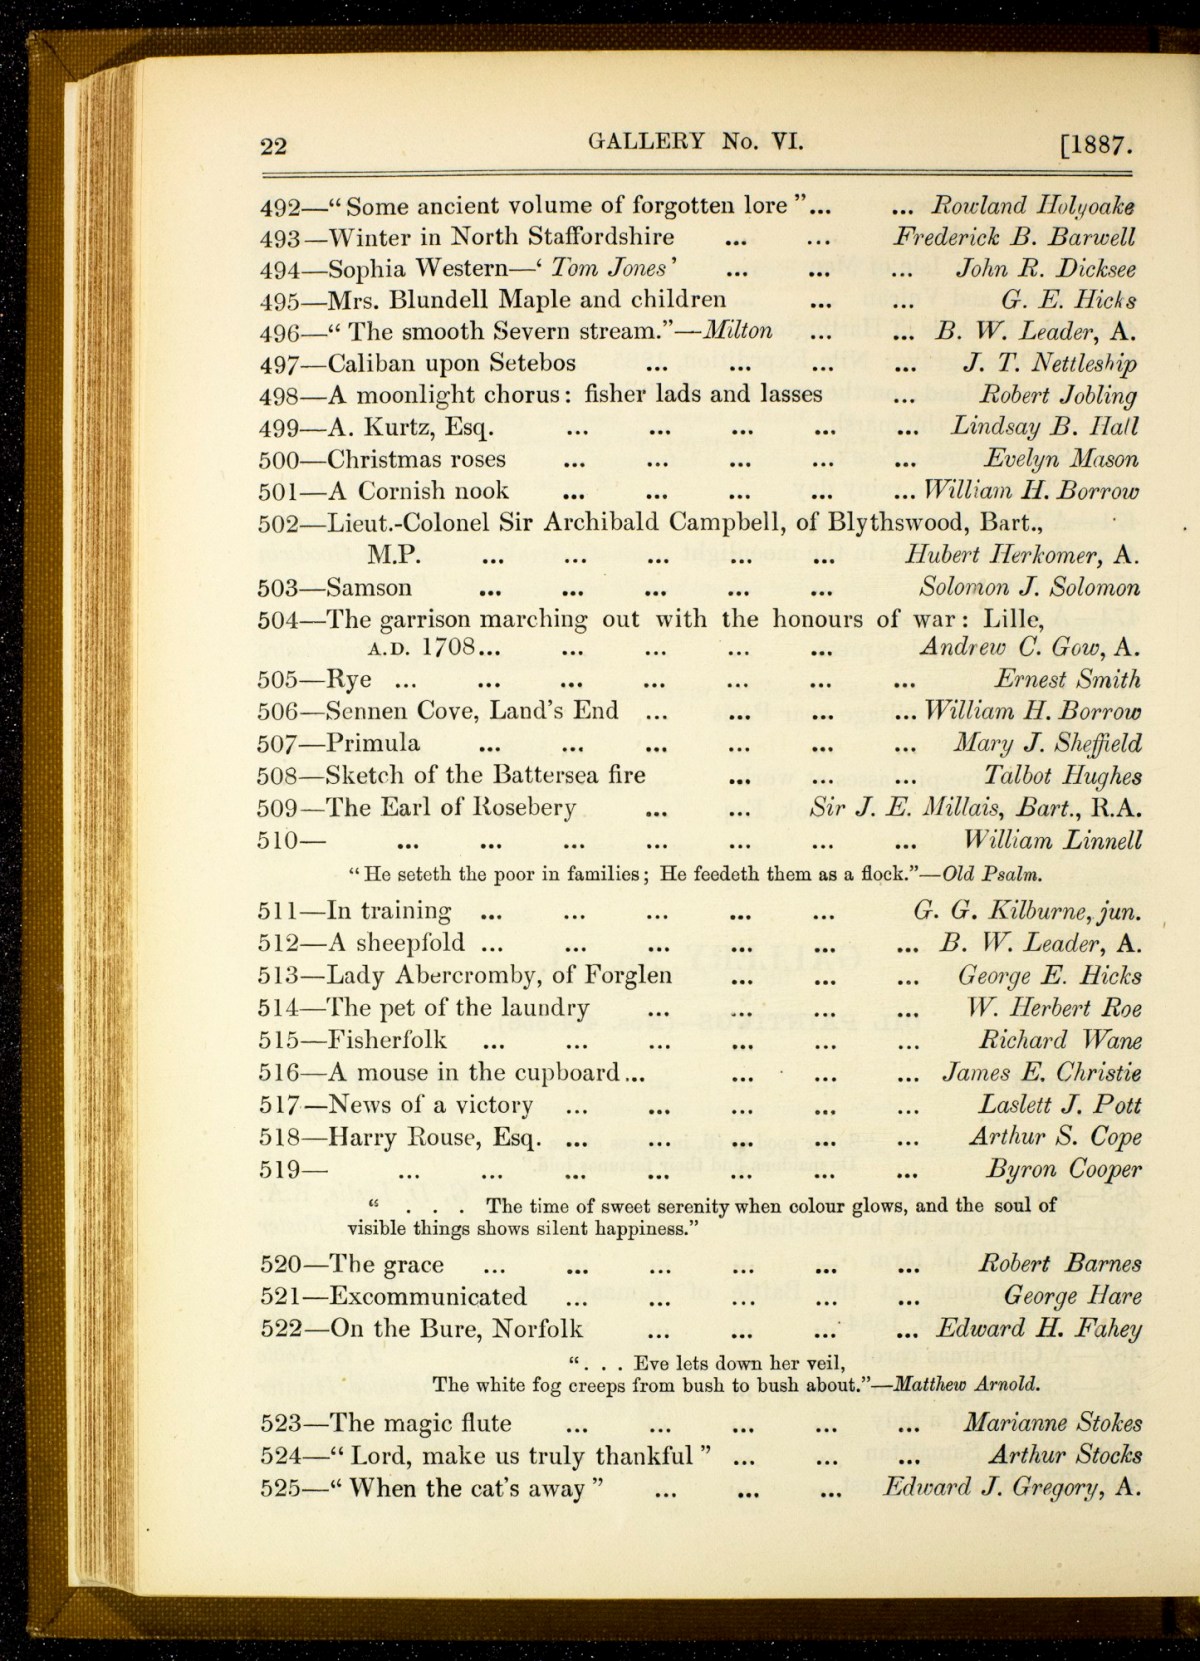 22 GALLERY No. VI. [1887.
492—“ Some ancient volume of forgotten lore ”... ... Rowland Holyoake
493—Winter in North Staffordshire ... ... Frederick B. Barwell
494—Sophia Western—‘ Tom Jones’ ... ... ... John R. Dicksee
495—Mrs. Blundell Maple and children ... ... G. E. Hicks
496—“ The smooth Severn stream.”—Milton ... ... B. W. Leader, A.
497—Caliban upon Setebos ... ... ... ... J. T. Nettleship
498—A moonlight chorus: fisher lads and lasses ... Robert Jobling
499—A. Kurtz, Esq. ... ... ... ... ... Lindsay B. Hall
500—Christmas roses ... ... ... ... ... Evelyn Mason
501—A Cornish nook ... ... ... ... ... William H. Borrow
502—Lieut.-Colonel Sir Archibald Campbell, of Blythswood, Bart.,
M.P. ... ... ... ... ... Hubert Herkomer, A.
503—Samson ... ... ... ... ... Solomon J. Solomon
504—The garrison marching out with the honours of war: Lille,
A.D. 1708... ... ... ... ... Andrew C. Gow, A.
505—Rye ... ... ... ... ... ... ... Ernest Smith
506—Sennen Cove, Land’s End ... ... ... ... William H. Borrow
507—Primula ... ... ... ... ... ... Mary J. Sheffield
508—Sketch of the Battersea fire ... ... ... Talbot Hughes
509—The Earl of Rosebery ... ... Sir J. E. Millais, Bart., R.A.
510— ... ... ... ... ... ... ... William Linnell
“ He seteth the poor in families; He feedeth them as a flock.”—Old Psalm.
511—In training ... ... ... ... ... G. G. Kilburne, jun.
512—A sheepfold ... ... ... ... ... ... B. W. Leader, A.
513—Lady Abercromby, of Forglen ... ... ... George E. Hicks
514—The pet of the laundry ... ... ... ... W. Herbert Roe
515—Fisherfolk ... ... ... ... ... ... Richard Wane
516—A mouse in the cupboard... ... ... ... James E. Christie
517—News of a victory ... ... ... ... ... Laslett J. Pott
518—Harry Rouse, Esq. ... ... ... ... ... Arthur S. Cope
519— ... ... ... ... ... ... ... Byron Cooper
“ . . . The time of sweet serenity when colour glows, and the soul of
visible things shows silent happiness.”
520—The grace ... ... ... ... ... ... Robert Barnes
521—Excommunicated ... ... ... ... ... George Hare
522—On the Bure, Norfolk ... ... ... ... Edward H. Fahey
“. . . Eve lets down her veil,
The white fog creeps from bush to bush about.”—Matthew Arnold.
523—The magic flute ... ... ... ... ... Marianne Stokes
524—“ Lord, make us truly thankful ” ... ... ... Arthur Stocks
525—“ When the cat’s away ” ... ... ... Edward J. Gregory, A.